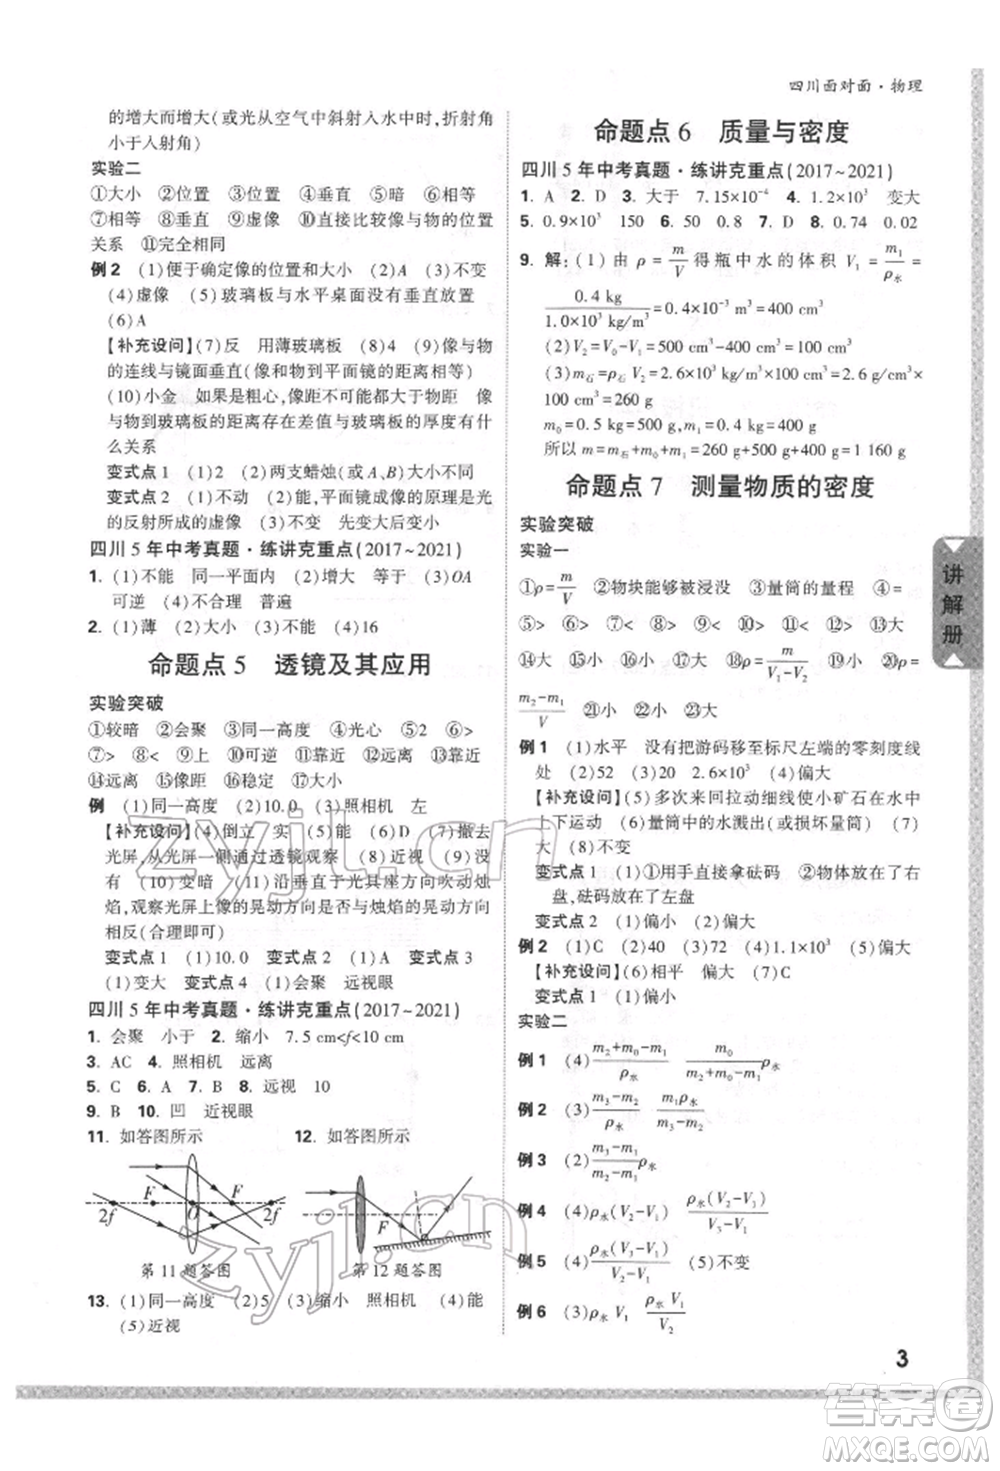 四川面对面·物理
的增大而增大(或光从空气中斜射入水中时,折射角
小于入射角)
实验二
①大小 ②位置 ③位置 ④垂直 ⑤暗 ⑥相等
⑦相等 ⑧垂直 ⑨虚像 ⑩直接比较像与物的位置
关系 ⑪完全相同
例2 (1)便于确定像的位置和大小 (2)A (3)不变
(4)虚像 (5)玻璃板与水平桌面没有垂直放置
(6)A
【补充设问】(7)反 用薄玻璃板 (8)4 (9)像与物
的连线与镜面垂直(像和物到平面镜的距离相等)
(10)小金 如果是粗心,像距不可能都大于物距 像
与物到玻璃板的距离存在差值与玻璃板的厚度有什
么关系
变式点1 (1)2 (2)两支蜡烛(或A、B)大小不同
变式点2 (1)不动 (2)能,平面镜成像的原理是光
的反射所成的虚像 (3)不变 先变大后变小
四川5年中考真题·练讲克重点(2017~2021)
1. (1)不能 同一平面内 (2)增大 等于 (3)OA
可逆 (4)不合理 普遍
2. (1)薄 (2)大小 (3)不能 (4)16
命题点5 透镜及其应用
实验突破
①较暗 ②会聚 ③同一高度 ④光心 ⑤2 ⑥>
⑦> ⑧< ⑨> ⑩可逆 ⑪靠近 ⑫靠近 ⑬远离
⑭远离 ⑮像距 ⑯稳定 ⑰大于
例 (1)同一高度 (2)10.0 (3)照相机 左
【补充设问】(4)倒立 实 (5)能 (6)D (7)撤去
光屏,从光屏一侧通过透镜观察 (8)近视 (9)没
有 (10)变暗 (11)沿垂直于光具座方向吹动烛
焰,观察光屏上像的晃动方向是否与烛焰的晃动方向
相反(合理即可)
变式点1 (1)10.0 变式点2 能 变式点3
(1)变大 变式点4 (1)会聚 近视眼
四川5年中考真题·练讲克重点(2017~2021)
1. 会聚 小于 2. 缩小 7.5 cm<f<10 cm
3. AC 4. 照相机 远离
5. C 6. A 7. B 8. 远视 10
9. B 10. 凹 近视眼
11. 如答图所示 12. 如答图所示
2f F O F 2f
F
第11题答图 第12题答图
13. (1)同一高度 (2)5 (3)缩小 照相机 (4)能
(5)近视
命题点6 质量与密度
四川5年中考真题·练讲克重点(2017~2021)
1. A 2. D 3. 大于 7.15×10⁻⁴ 4. 1.2×10³ 变大
5. 0.9×10³ 150 6. 50 0.8 7. D 8. 0.74 0.02
9. 解:(1)由ρ=m/V得瓶中水的体积V₁=m₁/ρ水=
0.4 kg/1.0×10³ kg/m³=0.4×10⁻³ m³=400 cm³
(2)V₂=V-V₁=500 cm³-400 cm³=100 cm³
(3)m石=ρ石 V₂=2.6×10³ kg/m³×100 cm³=2.6 g/cm³×
100 cm³=260 g
m₀=0.5 kg=500 g,m₁=0.4 kg=400 g
所以m=m石+m₀+m₁=260 g+500 g+400 g=1 160 g
命题点7 测量物质的密度
实验突破
实验一
①ρ=m/V ②物块能够被浸没 ③量筒的量程 ④=
⑤> ⑥> ⑦> ⑧> ⑨> ⑩小 ⑪大 ⑫小 ⑬大
⑭大 ⑮小 ⑯小 ⑰大 ⑱大 ⑲ρ=m/(V₁-V₂) ⑳
(m₂-m₁)/V ㉑小 ㉒小 ㉓大
例1 (1)水平 没有把游码移至标尺左端的零刻度线
处 (2)52 (3)20 2.6×10³ (4)偏大
【补充设问】(5)多次来回拉动细线使小矿石在水中
上下运动 (6)量筒中的水溅出(或损坏量筒) (7)偏
大 (8)不变
变式点1 (1)①用手直接拿砝码 ②物体放在了右
盘,砝码放在了左盘
变式点2 (1)偏小 (2)偏大
例2 (1)C (2)40 (3)72 (4)1.1×10³ (5)偏大
【补充设问】(6)相平 偏大 (7)C
变式点1 (1)偏小
实验二
例1 (4)(m₂+m₀-m₁)/ρ水 m₀/(m₂+m₀-m₁)ρ水
例2 (3)(m₃-m₁)/ρ水 m₁ρ水/(m₃-m₁)
例3 (2)(m₃-m₁)/(m₂-m₁)ρ水
例4 (4)ρ水(V₂-V₁) ρ水(V₂-V₁)/(V₃-V₁)
例5 (4)ρ水(V₃-V₁)/(V₂-V₁) (5)不变
例6 (3)ρ水 V₁ ρ水 V₁/V₁
讲解册
3
zyjl.cn
zyjl.cn
答案圈
MXQE.COM